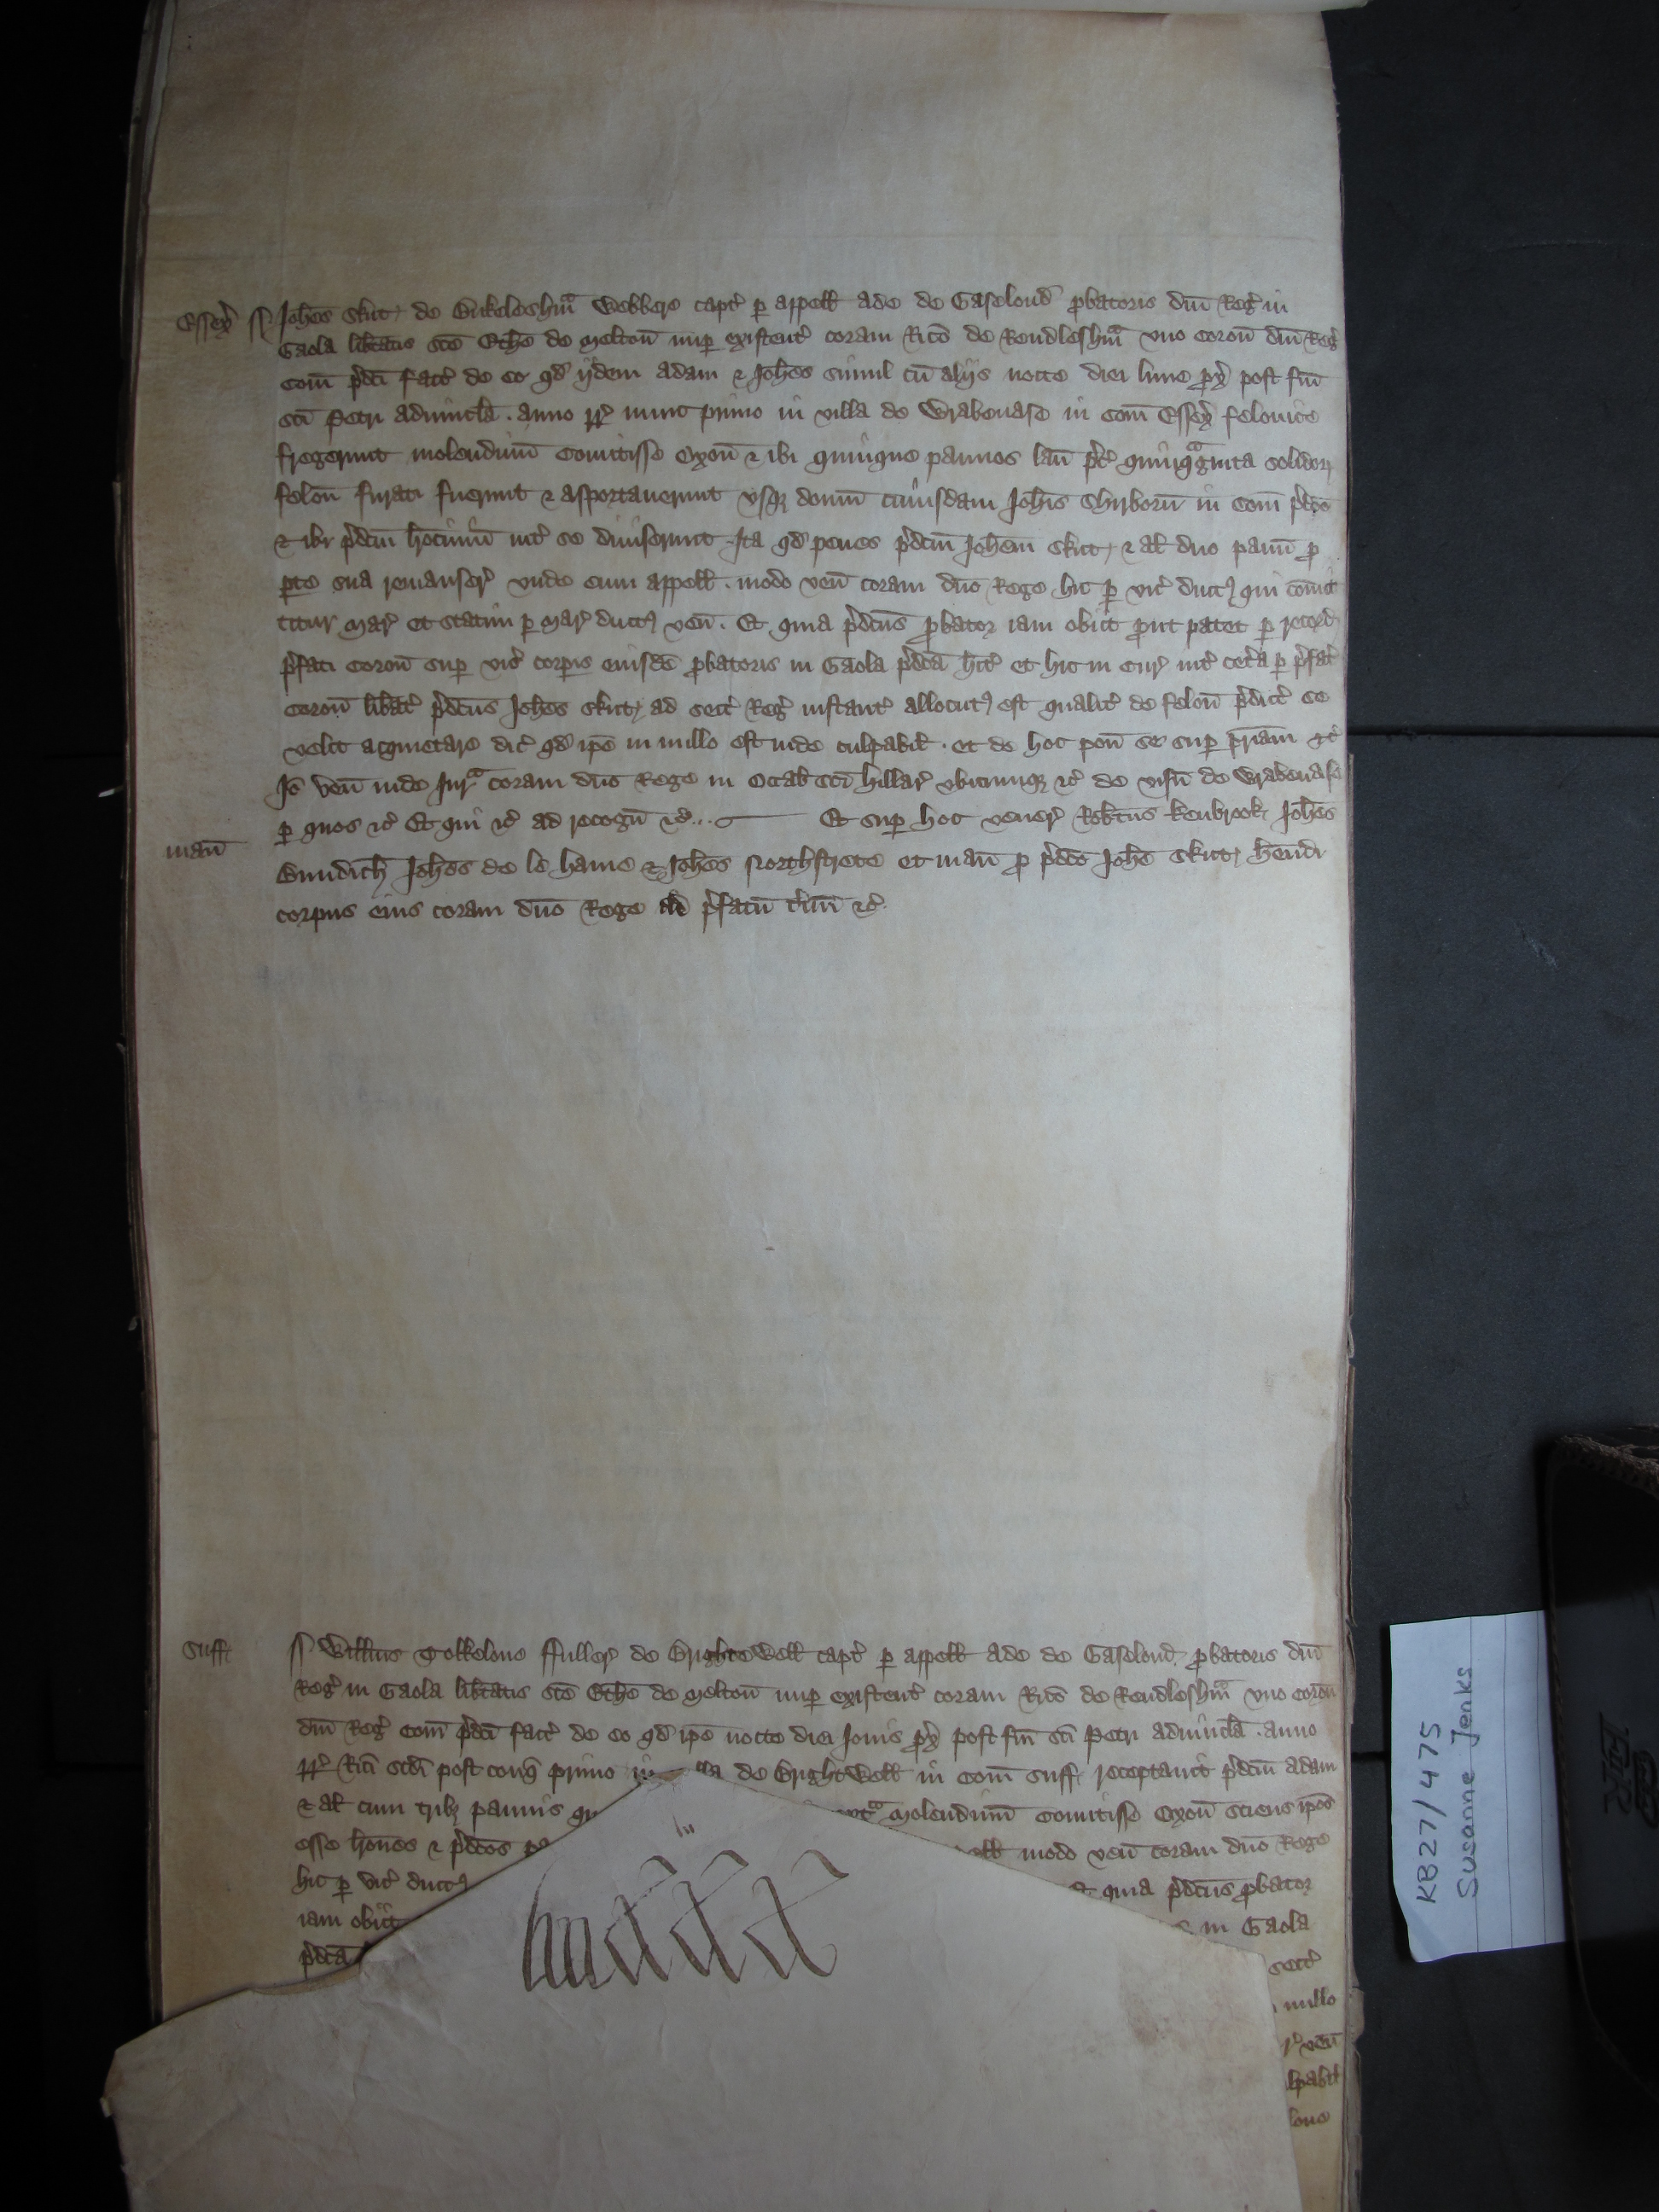 Essex̄ Joħes Skut de Bukeleshm̄ Webbere capt̄ p appell̄ Ade de Gaselond p̄batoris dn̄i Reḡ in
Gaola lib̄tatis sc̄e Etħe de Melton̄ nup existent̄ coram Ric̄o de Rendleshm̄ vno Coron̄ dn̄i Reḡ
Com̄ p̄dc̄i fact̄ de eo qd̄ ijdem Adam & Joħes simul cū alijs nocte diei lune px̄ post fm̄
sc̄i Petri aduincl̄a . anno rr̄ nunc primo in villa de Wrabenase in Com̄ Essex̄ felonice
fregerunt molendinū Comitisse Oxon̄ & ibi quinque pannos lan̄ p̄c̄ quinquaginta solidor̄
felon̄ furati fuerunt & asportauerunt vsq domū cuiusdam Joħis Chirborn̄ in Com̄ p̄dc̄o
& ibi p̄dc̄m latrociniū int̄ se diuiserunt . Ita qd̄ penes p̄dc̄m Joħem Skut & al̄ duo pann̄ p̄
pte sua remanser̄ vnde eum appell̄ . modo ven̄ coram dn̄o Rege hic p vic̄ duct̄ qui com̄it
titur Mar̄ Et statim p Mar̄ duct̄ ven̄ . Et quia p̄dc̄us p̄bator iam obijt put patet p record
p̄fati Coron̄ sup vis̄ corp̄is eiusdē p̄batoris in Gaola p̄dc̄a hit̄ et hic in Cur̄ int̄ cet̄a p p̄fat̄
Coron̄ lib̄at̄ p̄dc̄us Joħes Skut ad sect̄ Reḡ instant̄ allocut̄ est qualit̄ de felon̄ p̄dict̄ se
velit acquietare dic̄ qd̄ ip̄e in nullo est inde culpabil̄ . et de hoc pon̄ se sup p̄riam &c̄
Jō ven̄ inde Jur̄a coram dn̄o Rege in Octab̄ sc̄i Hillar̄ vbicumq &c̄ de visn̄ de Wrabenase
p quos &c̄ Et qui &c̄ ad recogn̄ &c̄ .. Et sup hoc vener̄ Rob̄tus Kenbrook Joħes
man̄
Bundich Joħes de le hame & Joħes Northstrete et man̄ p p̄dc̄o Joħe Skut ħendi
corpus eius coram dn̄o Rege ad p̄fatū t̄m̄ &c̄
Suff Willm̄s Tolkelone ffuller̄ de Brightewell̄ capt̄ p appell̄ Ade de Gaselond p̄batoris dn̄i
Reḡ in Gaola lib̄tatis sc̄e Etħe de Melton̄ nup existent̄ coram Ric̄o de Rendleshm̄ vno Coron̄
dn̄i Reḡ Com̄ p̄dc̄i fact̄ de eo qd̄ ip̄e nocte diei Jouis px̄ post fm̄ sc̄i Petri aduincl̄a . anno
rr̄ Ric̄i sc̄di post conq̄ primo in de Brightwell̄ in Com̄ Suff receptauit p̄dc̄m Adam
& al̄ cum trib pannis molendinū Comitisse Oxon̄ sciens ip̄os
esse ħoīes & p̄dc̄os modo ven̄ coram dn̄o Rege
hic p vic̄ duct̄ quia p̄dc̄us p̄bator
iam obijt in Gaola
p̄dc̄a
sect̄
nullo
ven̄
KB27/475
Susanne Jenks